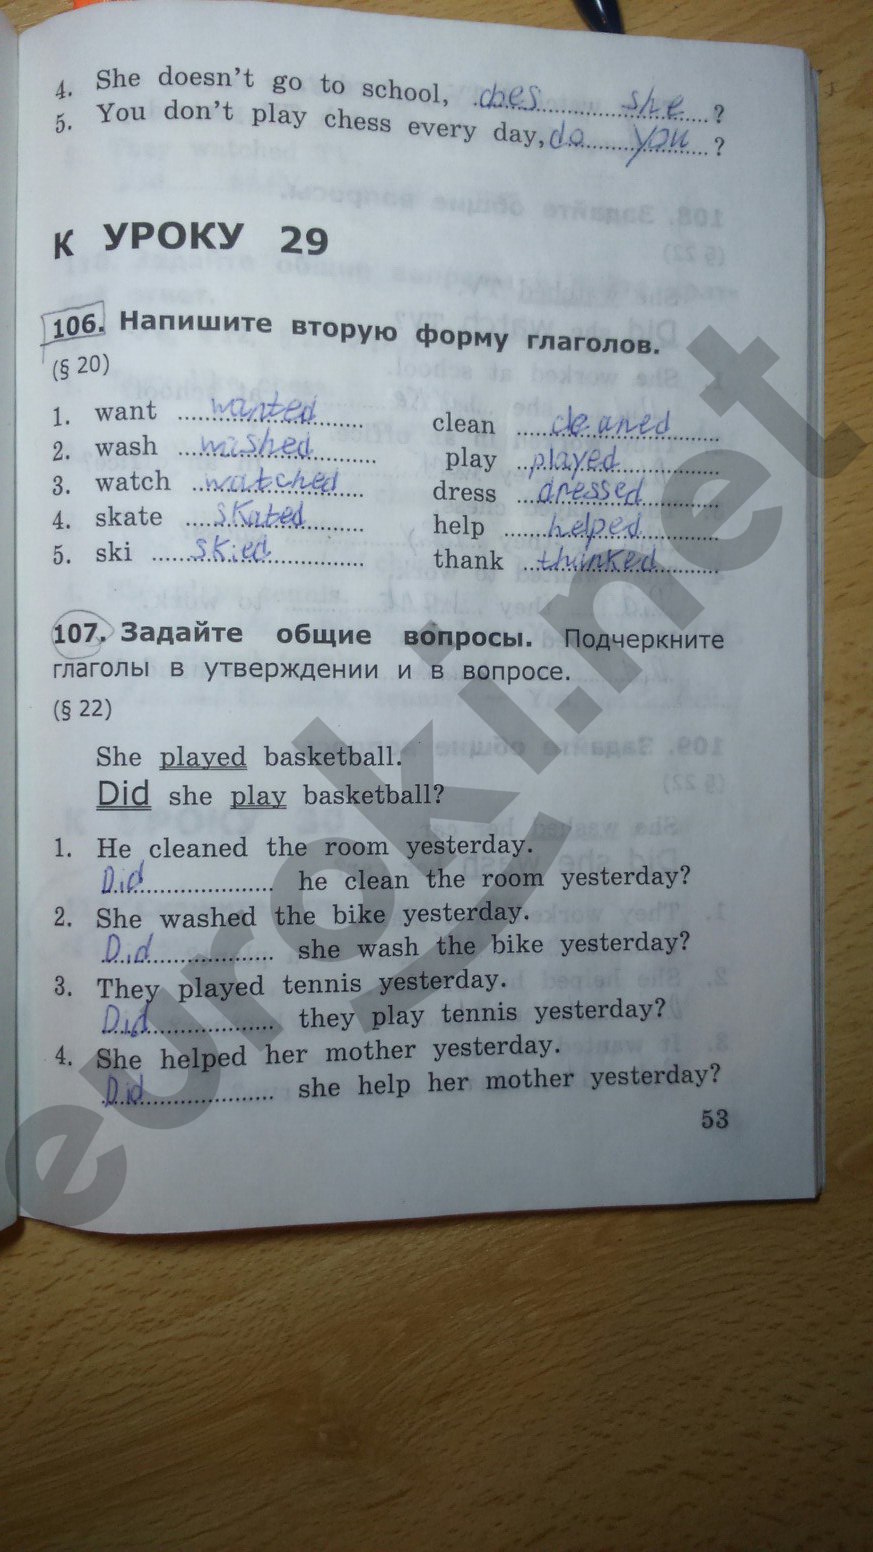 4. She doesn't go to school, does she ?
5. You don't play chess every day, do you ?
К УРОКУ 29
106. Напишите вторую форму глаголов.
(§ 20)
1. want wanted clean cleaned
2. wash washed play played
3. watch watched dress dressed
4. skate skated help helped
5. ski skied thank thinked
107. Задайте общие вопросы. Подчеркните
глаголы в утверждении и в вопросе.
(§ 22)
She played basketball.
Did she play basketball?
1. He cleaned the room yesterday.
Did he clean the room yesterday?
2. She washed the bike yesterday.
Did she wash the bike yesterday?
3. They played tennis yesterday.
Did they play tennis yesterday?
4. She helped her mother yesterday.
Did she help her mother yesterday?
53
euroki.net